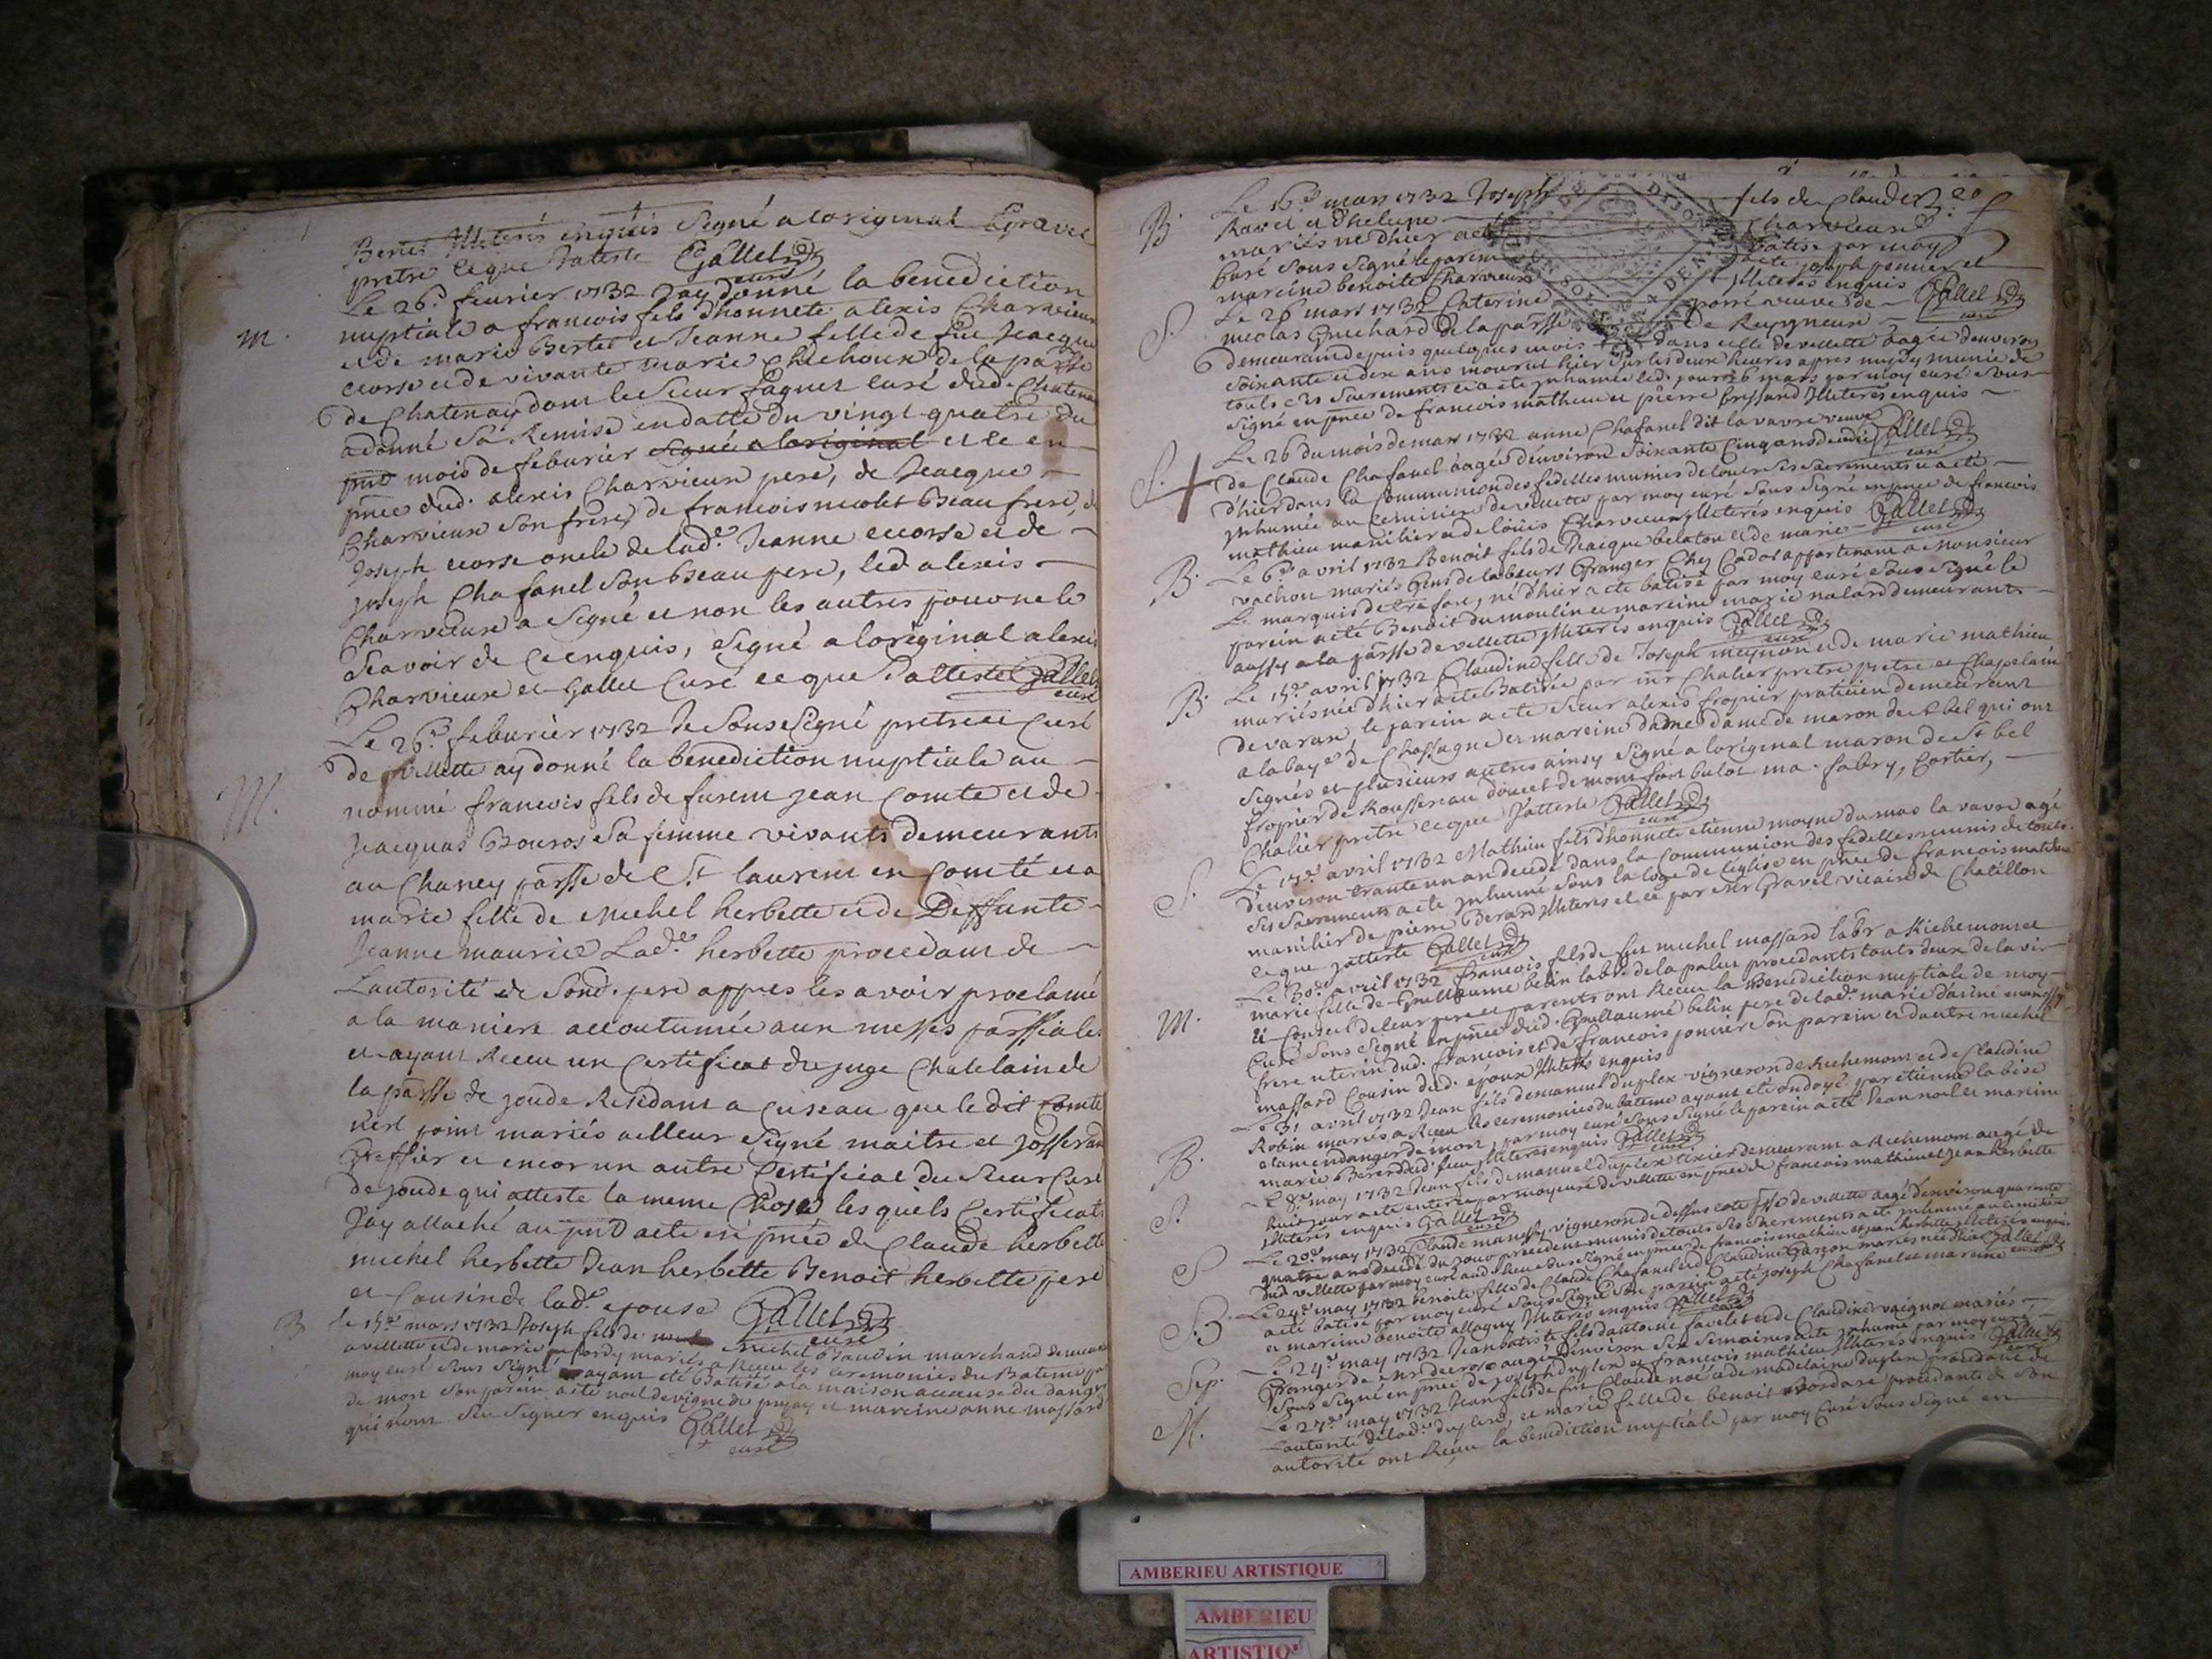 Bertet Illiterés enquis Signé a loriginal Gravel
pretre ce que Jateste Gallet curé
Le 26e fevrier 1732 Jay donné la benediction
nuptiale a francois fils d'honnete alexis Charvieux
et de marie Bertet et Jeanne fille de feu Jeacque
ecorse et de vivante marie de la parsse
de Chatenay dont le Sieur faguet curé dud. Chatenay
a donné Sa Remise en datte du vingt quatre du
pnt mois de feburier signé a loriginal et ce en
pnce dud. alexis Charvieux pere, de Jeacque
Charvieux Son frere, de francois nicolet Beau frere, de
Joseph ecorse oncle de lad.e Jeanne ecorse et de
joseph Chafanel Son beau pere, led alexis
Charvieux a Signé et non les autres pour ne le
Scavoir de ce enquis, Signé a loriginal alexis
Charvieux et Gallet Curé ce que J'atteste Gallet
curé
Le 26e feburier 1732 Je Soussigné pretre et Curé
de villette ay donné la benediction nuptiale au
nommé francois fils de furent jean Comte et de
Jacquas Bouros Sa femme vivants demeurants
au Chaney parsse de St laurent en Comté et a
marie fille de Michel herbette et de Deffunte
Jeanne maurice Lad.e herbette procedant de
Lautorité de Sond. pere appres les avoir proclamé
a la maniere accoutumée aux messes parssiales
et ayant Receu un Certificat du juge Chatelain de
la parsse de joude Residant a Cuseau que le dit Comte
n'est point mariés ailleur Signé maitre et josserand
Greffier et encor un autre Certificat du Sieur Curé
de joude qui atteste la meme Chose les quels Certificats
J'ay attaché au pnt acte en pnce de Claude herbette
michel herbette Jean herbette Benoit herbette pere
et Cousin de lad.e epouse Gallet curé
Le 15e mars 1732 Joseph fils de michel Baudin marchand demeurant
a villette et de marie mariés a Receu les ceremonies du Bateme par
moy curé sous Signé ayant été Batisé a la maison a cause du danger
de mort Son parein a été noel devigne de priay et mareine anne massard
qui n'ont Sceu Signer enquis Gallet
curé
Le 16e mars 1732 Joseph fils de Claude
Ravet et Charvieux
mariés né d'hier a été batisé par moy
Curé Sous Signé le parein a été joseph
mareine benoite Charvieux Illiterés enquis Gallet curé
Le 26 mars 1732 Caterine veuve de
nicolas Guichard de la parsse de
demeurant depuis quelques mois dans celle de villette aagée d'environ
soixante et dix ans mourut hier Sur les deux heures appres midy munie de
touts ces Sacrements et a été inhumée led. jour 26 mars par moy curé sous
signé en pnce de francois mathieu et pierre brissand Illiterés enquis
Le 26 du mois de mars 1732 anne Chafanel dit la vavre veuve Gallet curé
de Claude Chafanel aagée d'environ Soixante Cinq ans decedée
d'hier dans la Communion des fidelles munies de touts Ses Sacrements a été
inhumée au Cemitiere de villette par moy curé sous Signé en pnce de francois
mathieu manilier et de louis Charvieux Illiterés enquis Gallet curé
Le 6e avril 1732 Benoit fils de Jeacque belaton et de marie
vachon mariés Gens de labeurs Granger Chez Cadot appartenant a Monsieur
Le marquis de , né d'hier a été batisé par moy curé Sous Signé le
parein a été Benoit du moulin et mareine marie nalard demeurants
aussy a la parsse de villette Illiterés enquis Gallet curé
Le 15e avril 1732 Claudine fille de Joseph meynon et de marie mathieu
mariés née d'hier a été Batisée par mr Chalier pretre pretre et Chapelain
de varax le parein a été Sieur alexis fropier praticien demeurant
a labaye de Chassagne et mareine dame dame de maron de St bel qui ont
Signés et plusieurs autres ainsy Signé a loriginal maron de St bel
fropier de Roussereau doucet de montfort bulot ma. fabry, Cortier,
Chalier pretre ce que Jatteste Gallet curé
Le 17e avril 1732 Mathieu fils d'honnete etienne moyne du mas la vavre agé
d'environ trante un an decedé dans la Communion des fidelles munis de touts
Ses Sacrements a été inhumé Sous la loge de leglise en pnce de francois mathieu
manilier de pierre Berard Illiterés et ce par Mr Gravel vicaire de Chatillon
ce que jatteste Gallet curé
Le 30e avril 1732 francois fils de feu michel massard labr a Richemont et
marie fille de Guillaume belin labr de la palud procedants touts deux de lavis
et Conseil de leur pere et parents ont Receu la Benediction nuptiale de moy
Curé Sous Signé en pnce dud. Guillaume belin pere de lad.e marie
frere uterin dud. francois et de francois ponsier Son parein et d'autre michel
massard Cousin dud. epoux Illiterés enquis
Le 31 avril 1732 Jean fils d'emanuel duplex vigneron de Richemont et de Claudine
Robin mariés a Receu les ceremonies du bateme ayant été ondoyé par etienne la bise
etant en danger de mort, par moy curé Sous Signé le parein a été Jean noel et mareine
marie Berard Illiterés enquis Gallet curé
Le 8e may 1732 Jean fils d'emanuel duplex demeurant a Richemont aagé de
huit jour a été enterré par moy curé de villette en pnce de francois mathieu et Jean herbette
Illiterés enquis Gallet curé
Le 20e may 1732 Claude vigneron de dessus cote psse de villette aagé d'environ quarante
quatre ans decedé du jour precedent munis de touts Ses Sacrements a été inhumé au cimitiere
dud villette par moy curé Signé en pnce de francois mathieu et jean herbette Illiterés enquis
Le 24e may 1732 benoite fille de Claude Chafanel et de Claudine Garçon mariés née d'hier Gallet curé
a été batisé par moy curé Sous Signé Son parein a été joseph Chafanel et mareine
et mareine benoite allagny Illiterés enquis Gallet curé
Le 24e may 1732 Jean batiste fils d'antoine favelet et de Claudine vaignot mariés
Granger de aagé d'environ Six Semaines a été inhumé par moy curé
Sous Signé en pnce de joseph duplex et francois mathieu Illiterés enquis Gallet curé
Le 27e may 1732 Jean fils de feu Claude noé et de madelaine duplex procedant de
Lautorité de lad.e duplex, et marie fille de benoit procedante de Son
autorité ont Receu la benediction nuptiale par moy Curé Sous Signé en
AMBERIEU ARTISTIQUE
AMBERIEU
ARTISTIQ